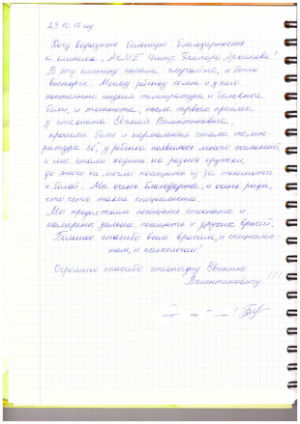 23.10.17 год.
Хочу выразить большую благодарность
к клинике "АКМЕ Центр Доктора
В эту клинику попала случайно, и была в
восторге. Моему ребенку
постоянно температура и головные
боли, и тошнота, после первого приема
у стеопата Евгения Валентиновича,
прошли боли и нормальная стала темпе-
ратура 36°, у ребенка появилось много желаний
и мы стали ходить на разные кружки,
до этого не могли посещать из за тошноты
и болей. Мы очень благодарны, и очень рады,
что есть такие специалисты.
Мы продолжаем посещать стеопата и
намерены дальше посещать и других врачей.
Большое спасибо всем врачам, и специалис-
там, и психологам!
Огромное спасибо стеопату Евгению
Валентиновичу !!!